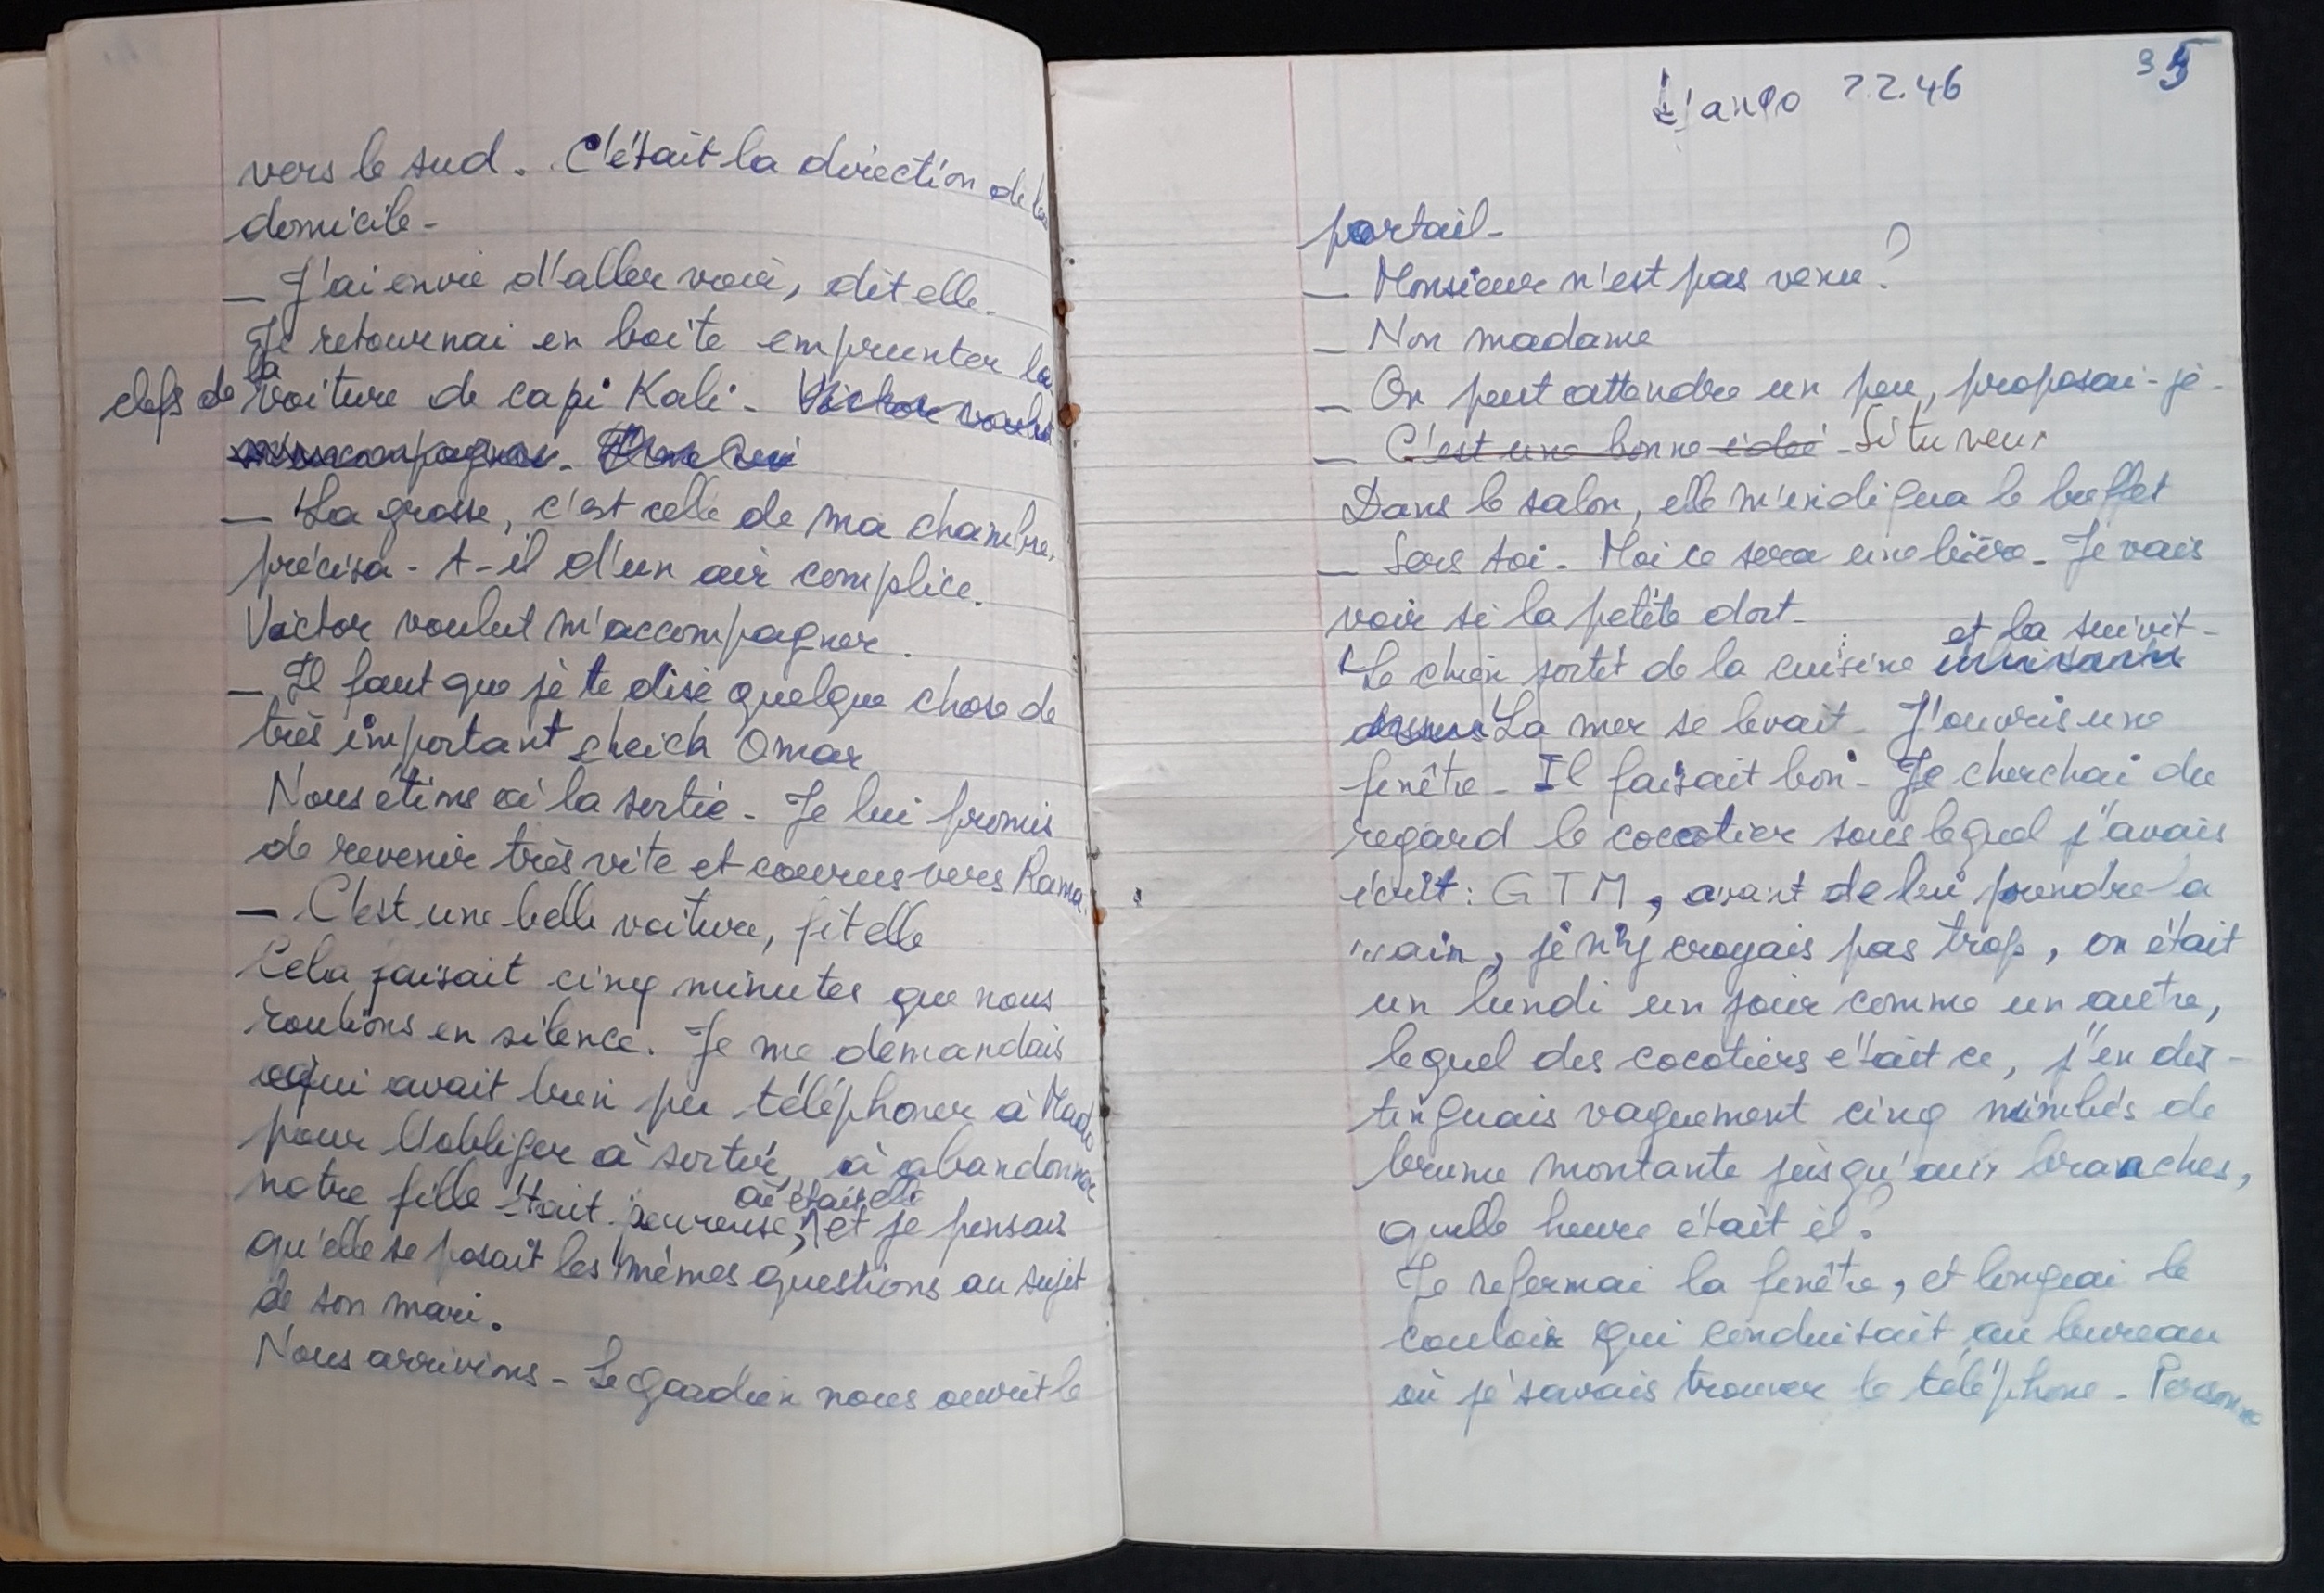 vers le sud. C'était la direction de leur
domicile -
_ J'ai envie d'aller voir, dit elle.
Je retournai en boîte emprunter les
clefs de la voiture de capi Kali - Victor voulut
m'accompagner.
_ La grosse, c'est celle de ma chambre,
précisa-t-il d'un air complice.
Victor voulut m'accompagner.
_ Il faut que je te dise quelque chose de
très important cheick Omar
Nous étions à la sortie - Je lui promis
de revenir très vite et courus vers Rama.
_ C'est une belle voiture, fit elle
Cela faisait cinq minutes que nous
roulions en silence. Je me demandais
qui avait bien pu téléphoner à Mado
pour l'obliger à sortir, à abandonner
notre fille était peureuse, où était elle et je pensais
qu'elle se posait les mêmes questions au sujet
de son mari.
Nous arrivions - Le gardien nous ouvrit le
22.46
35
portail -
_ Monsieur n'est pas venu?
_ Non madame
_ On peut attendre un peu, proposai-je -
_ C'est une bonne idée - Si tu veux
Dans le salon, elle m'indiqua le buffet
_ Sers toi - Moi ce sera une bière - Je vais
voir si la petite dort -
et la suivit -
Le chien sortit de la cuisine
La mer se levait - J'ouvris une
fenêtre - Il faisait bon - Je cherchai du
regard le cocotier sous lequel j'avais
écrit : G T M, avant de lui prendre la
main, je n'y croyais pas trop, on était
un lundi un jour comme un autre,
lequel des cocotiers était ce, j'en dis-
tinguais vaguement cinq nimbés de
brume montante jusqu'aux branches,
quelle heure était il?
Je refermai la fenêtre, et longeai le
couloir qui conduisait au bureau
où je savais trouver le téléphone - Personne